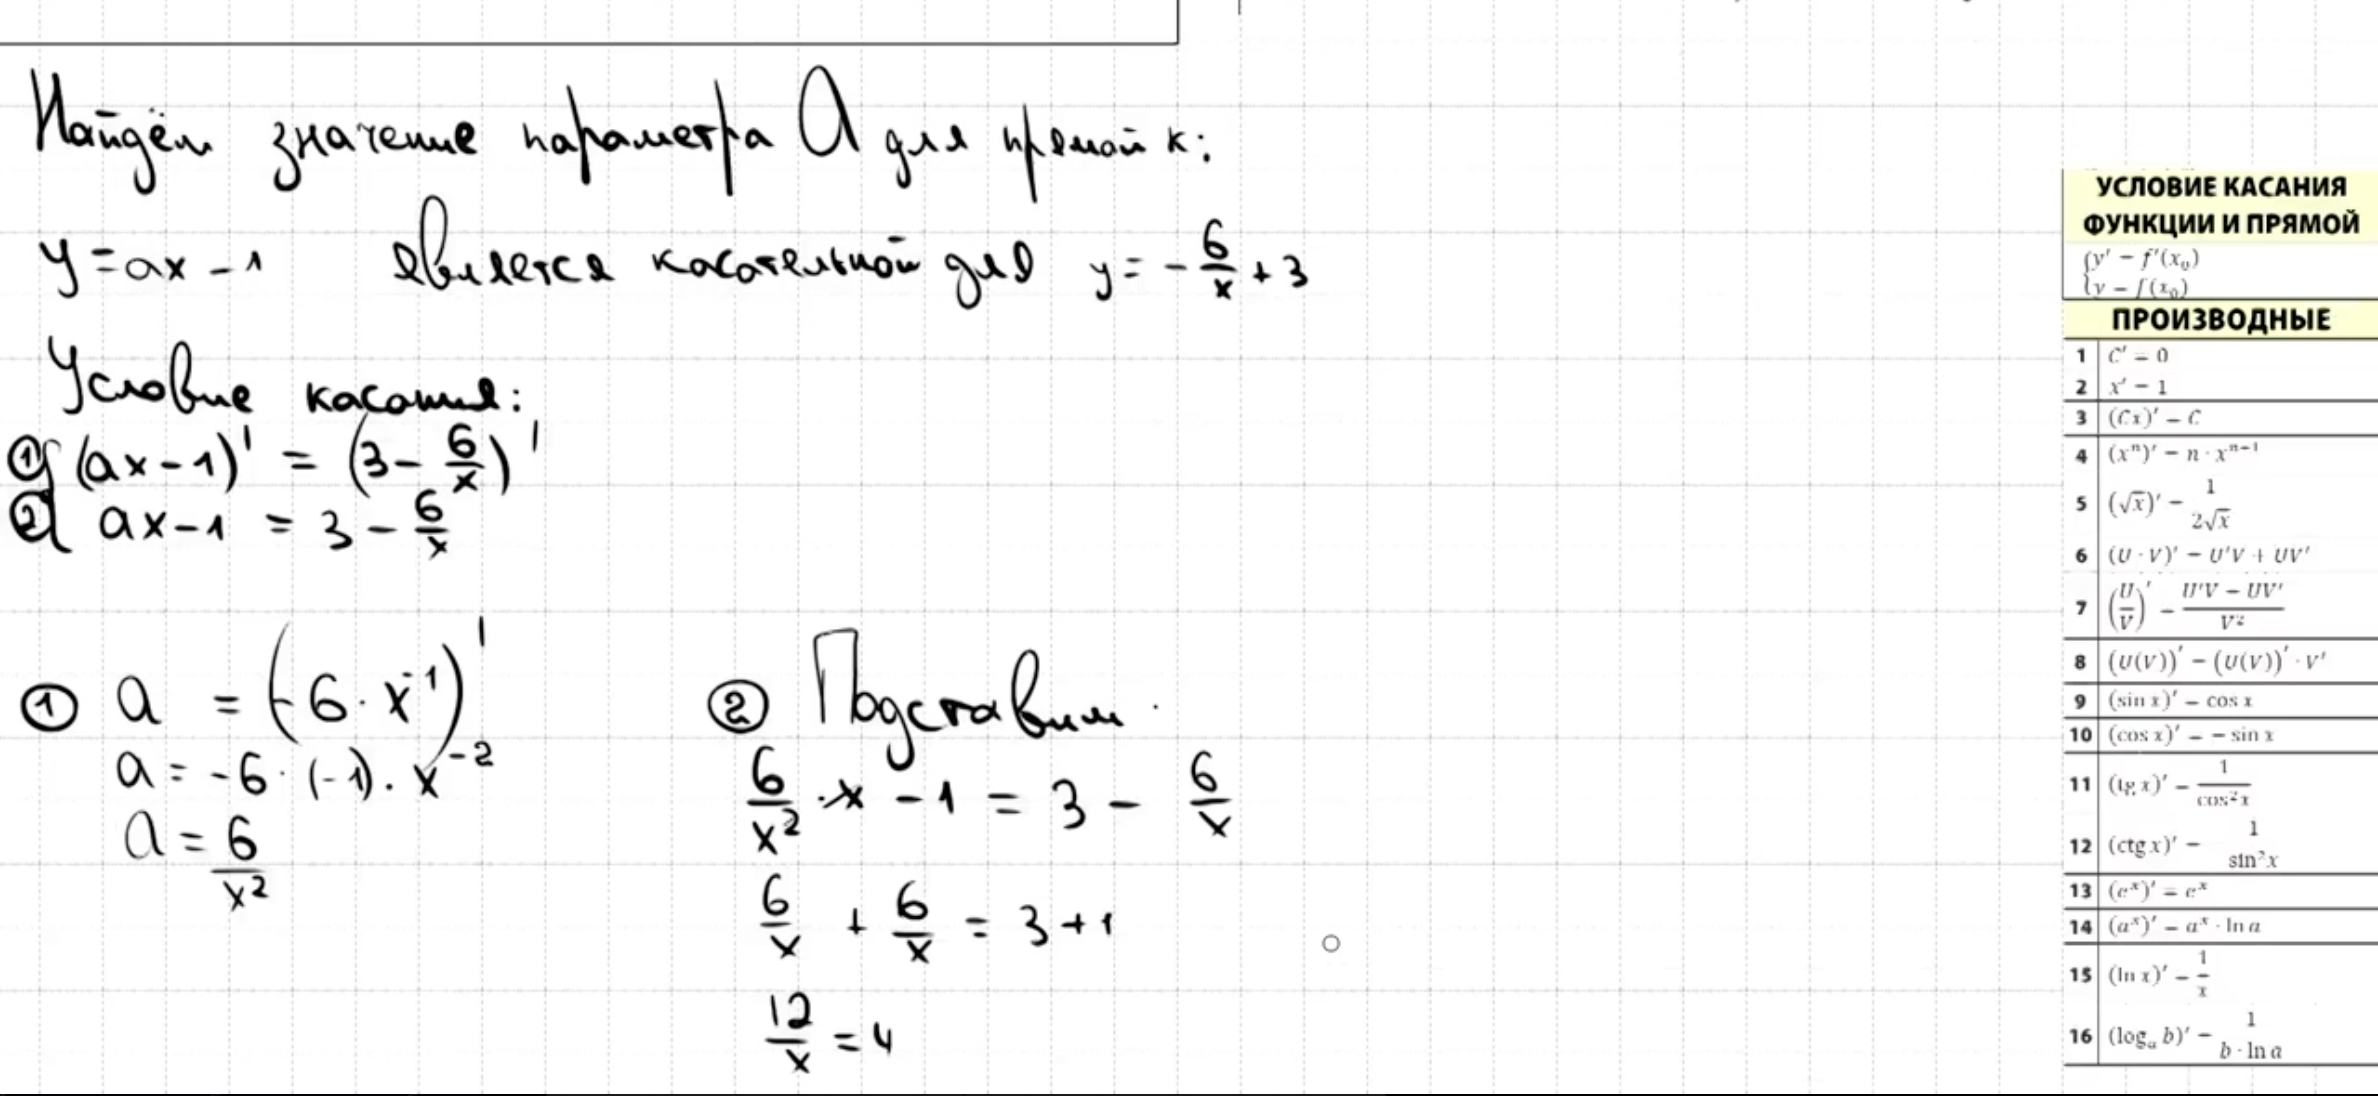 Найдём значение параметра a для прямой к:
y = ax - 1 является касательной для y = - 6/x + 3
Условие касания:
① { (ax - 1)' = (3 - 6/x)'
② { ax - 1 = 3 - 6/x
① a = (-6 · x^-1)'
a = -6 · (-1) · x^-2
a = 6/x^2
② Подставим.
6/x^2 · x - 1 = 3 - 6/x
6/x + 6/x = 3 + 1
12/x = 4
УСЛОВИЕ КАСАНИЯ
ФУНКЦИИ И ПРЯМОЙ
{ y' = f'(x₀)
{ y = f(x₀)
ПРОИЗВОДНЫЕ
1 C' = 0
2 x' = 1
3 (Cx)' = C
4 (xⁿ)' = n · xⁿ⁻¹
5 (√x)' = 1/(2√x)
6 (U · V)' = U'V + UV'
7 (U/V)' = (U'V - UV')/V²
8 (U(V))' = (U(V))' · V'
9 (sin x)' = cos x
10 (cos x)' = - sin x
11 (tg x)' = 1/cos²x
12 (ctg x)' = 1/sin²x
13 (eˣ)' = eˣ
14 (aˣ)' = aˣ · ln a
15 (ln x)' = 1/x
16 (logₐ b)' = 1/(b · ln a)